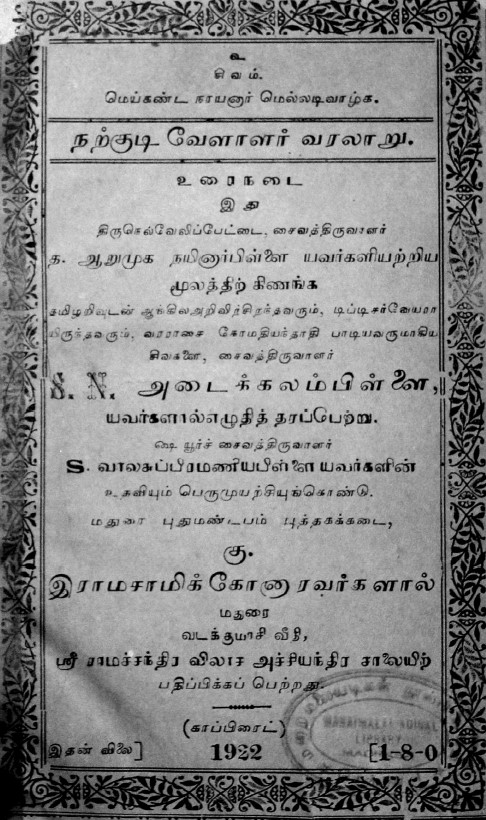 உ
சிவம்.
மெய்கண்ட நாயனார் மெல்லடிவாழ்க.
நற்குடி வேளாளர் வரலாறு.
உரைநடை
இது
திருநெல்வேலிப்பேட்டை, சைவத்திருவாளர்
த. ஆறுமுக நயினார்பிள்ளை யவர்களியற்றிய
மூலத்திற் கிணங்க
தமிழறிவுடன் ஆங்கிலஅறிவிற்சிறந்தவரும், டிப்டிசர்வேயரா
யிருந்தவரும், வரராசை கோமதியந்தாதி பாடியவருமாகிய
சிவகளை, சைவத்திருவாளர்
S. N. அடைக்கலம்பிள்ளை,
யவர்களால்எழுதித் தரப்பெற்று.
ஷெ யூர்ச் சைவத்திருவாளர்
S. வாலசுப்பிரமணியபிள்ளை யவர்களின்
உதவியும் பெருமுயற்சியுங்கொண்டு.
மதுரை புதுமண்டபம் புத்தகக்கடை,
கு.
இராமசாமிக் கோனாரவர்களால்
மதுரை
வடக்குமாசி வீதி,
ஸ்ரீ ராமச்சந்திர விலாச அச்சியந்திர சாலையிற்
பதிப்பிக்கப் பெற்றது.
(காப்பிரைட்)
இதன் விலை] 1922 [1-8-0
MARAIMALAI ADIGAL
LIBRARY